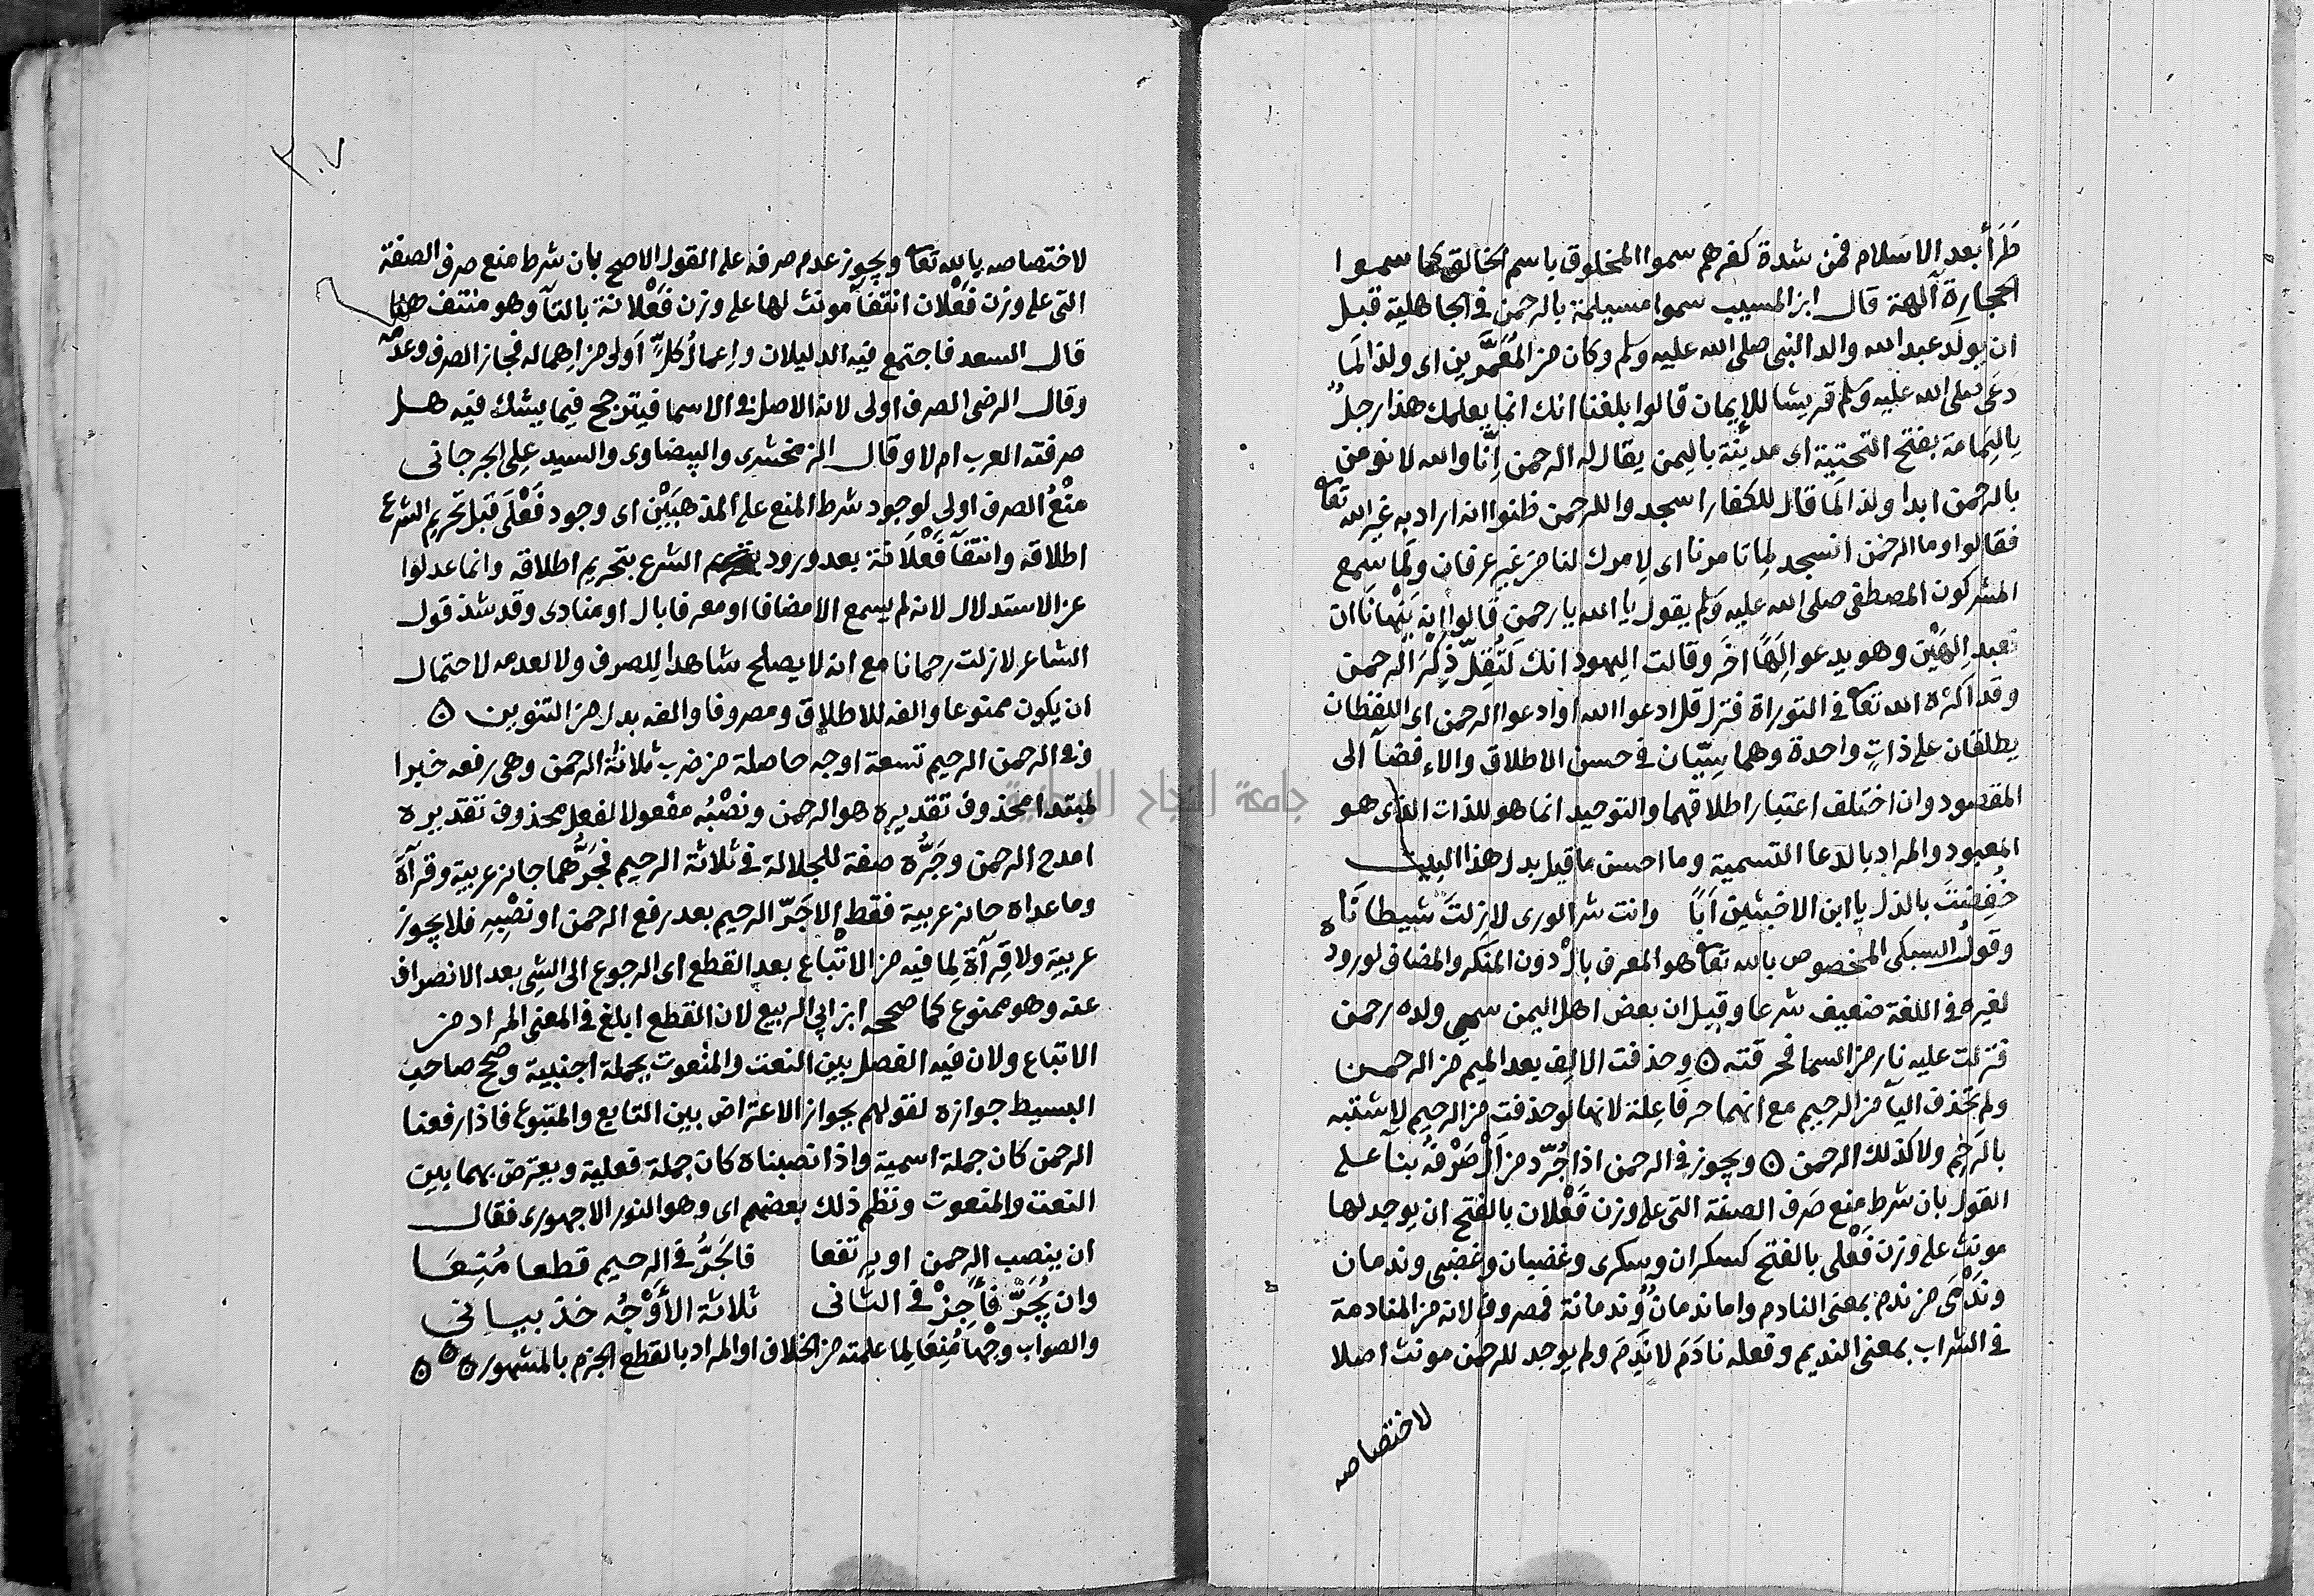 طَرَأ بعد الاسلام فمن شدة كفرهم سموا المخلوق باسم الخالق كما سموا
الحجارة آلهة قال ابن المسيب سموا مسيلمة بالرحمن في الجاهلية قبل
ان يولد عبد الله والد النبي صلى الله عليه وسلم وكان من المُعَمَّرين اى ولذا لَما
دعى صلى الله عليه وسلم قريشا للإيمان قالوا بلغنا انك انما يعلمك هذا رجلٌ
بِاليَمامة بفتح التحتية اى مدينة باليمن يقال له الرحمن إنَّا والله لا نومن
بالرحمن ابدا ولذا لَما قال للكفار اسجدوا للرحمن ظنوا انه اراد به غير الله تعا
فقالوا وما الرحمن انسجد لِما تامرنا اى لِامرك لنا من غير عرفان ولَما سمع
المشركون المصطفى صلى الله عليه وسلم يقول يا الله يا رحمن قالوا إنه يَنْهانَا ان
نعبد إِلهَيْن وهو يدعو إِلَهًا اخَر وقالت اليهود انك لَتُقِلّ ذِكْرَ الرحمن
وقد اكثره الله تعا في التوراة فنزل قل ادعوا الله او ادعوا الرحمن اى اللفظان
يطلقان على ذاتٍ واحدة وهما سِيّان في حسن الاطلاق والافضآ الى
المقصود وان اختلف اعتبار اطلاقهما والتوحيد انما هو للذات الذى هو
المعبود والمراد بالدعا التسمية وما احسن ما قيل بدل هذا البيت
خُفِضْتَ بالذل يا ابن الاخبثين اَبًا وانت شر الورى لا زلتَ شيطانَا ه
وقولُ السبكى المخصوص بالله تعا هو المعرف بالْ دون المنَكر والمضاف لورود
لغيره في اللغة ضعيف شرعا وقيل ان بعض اهل اليمن سمى ولده رحمن
فنزلت عليه نار من السما فحرقته ه وحذفت الالف بعد الميم من الرحمن
ولم تحذف اليآ من الرحيم مع انهما حرفا علة لانها لو حذفت من الرحيم لاشتبه
بالرَحِم ولا كذلك الرحمن ه ويجوز في الرحمن اذا جُرّد من اَلْ صَرْفُه بنآ على
القول بان شرط منع صَرف الصفة التى على وزن فَعْلان بالفتح ان يوجد لها
مونث على وزن فَعْلى بالفتح كسكران وسكرى وغضبان وغضبى وندمان
ونَدْمَى من ندم بمعنى النادم واما ندمانٌ وندمانة فمصروف لانه من المنادمة
في الشراب بمعنى النديم وفعله نادَمَ لا نَدِمَ ولم يوجد للرحمن مونث اصلا
لاختصاصه
٣٠٧
لاختصاصه بالله تعا ويجوز عدم صرفه على القول الاصح بان شرط منع صرف الصفة
التى على وزن فَعْلان انتفآ مونث لها على وزن فَعْلانة بالتآ وهو منتف هنا
قال السعد فاجتمع فيه الدليلان وإعمالُ كلٍّ اَولى من إهماله فجاز الصرف وعدمه
وقال الرضى الصرف اولى لانه الاصل في الاسما فيترجح فيما يشك فيه هل
صرفته العرب ام لا وقال الزمخشرى والبيضاوى والسيد على الجرجانى
مَنْعُ الصرف اولى لوجود شرط المنع على المذهَبَيْن اى وجود فَعْلَى قبل تحريم الشرع
اطلاقه وانتفآ فَعْلَانة بعد ورود الشرع بتحريم اطلاقه وانما عدلوا
عن الاستدلال لانه لم يسمع الا مضافا او معرفا بال او منادى وقد شذ قول
الشاعر لا زلت رحمانا مع انه لا يصلح شاهدا للصرف ولا لعدمه لاحتمال
ان يكون ممنوعا والفه للاطلاق ومصروفا والفه بدل من التنوين ه
وفي الرحمن الرحيم تسعة اوجه حاصلة من ضرب ثلاثة الرحمن وهى رفعه خبرا
لمبتدا محذوف تقديره هو الرحمن ونَصْبُه مفعولا لفعل محذوف تقديره
امدح الرحمن وجَرُّه صفة للجلالة في ثلاثة الرحيم فجَرُّهما جائز عربية وقرآة
وما عداه جائز عربية فقط إلا جَرّ الرحيم بعد رفع الرحمن او نَصْبِهِ فلا يجوز
عربية ولا قِرآة لِما فيه من الاتْباع بعد القطع اى الرجوع الى الشى بعد الانصراف
عنه وهو ممنوع كما صححه ابن ابى الربيع لان القطع ابلغ في المعنى المراد من
الاتباع ولان فيه الفصل بين النعت والمنعوت بجملة اجنبية وصحح صاحب
البسيط جوازه لقولهم بجواز الاعتراض بين التابع والمتبوع فاذا رفعنا
الرحمن كان جملة اسمية واذا نصبناه كان جملة فعلية ويعترض بهما بين
النعت والمنعوت ونظم ذلك بعضهم اى وهو النور الاجهورى فقال
ان ينصب الرحمن او يرتفعا فالجَرُّ في الرحيم قطعا مُنِعَا
وان يُجَرّ فَأَجِزْ في الثانى ثلاثة الأَوْجُه خذ بيانى
والصواب وجْها مُنِعَا لِما علمته من الخلاف او المراد بالقطع الجزم بالمشهور ه ه ه
جامعة النجاح الوطنية